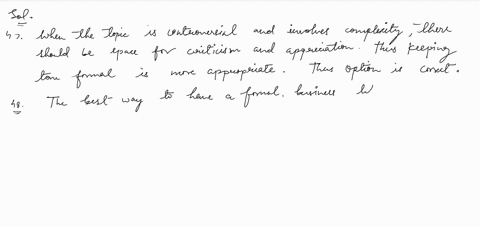 Sol.
47. When the topic is controversial and involves complexity, there
should be space for criticism and appreciation. Thus keeping
tone formal is more appropriate. Thus option is correct.
48. The best way to have a formal, business